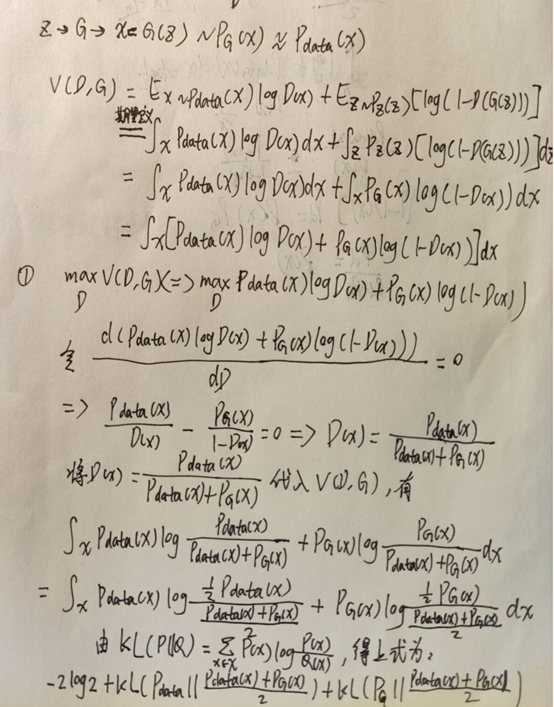 z → G → x = G(z) ~ P_G(x) ≈ Pdata(x)
V(D,G) = E_{x~Pdata(x)} log D(x) + E_{z~P_z(z)}[log(1-D(G(z)))]
期望定义 = ∫_x Pdata(x) log D(x) dx + ∫_z P_z(z)[log(1-D(G(z)))]dz
= ∫_x Pdata(x) log D(x) dx + ∫_x P_G(x) log(1-D(x)) dx
= ∫_x [Pdata(x) log D(x) + P_G(x) log(1-D(x))]dx
① max_D V(D,G) <=> max_D Pdata(x) log D(x) + P_G(x) log(1-D(x))
令 d(Pdata(x) log D(x) + P_G(x) log(1-D(x))) / dD = 0
=> Pdata(x)/D(x) - P_G(x)/(1-D(x)) = 0 => D(x) = Pdata(x)/(Pdata(x)+P_G(x))
将D(x) = Pdata(x)/(Pdata(x)+P_G(x)) 代入 V(D,G), 有
∫_x Pdata(x) log Pdata(x)/(Pdata(x)+P_G(x)) + P_G(x) log P_G(x)/(Pdata(x)+P_G(x)) dx
= ∫_x Pdata(x) log (½ Pdata(x))/((Pdata(x)+P_G(x))/2) + P_G(x) log (½ P_G(x))/((Pdata(x)+P_G(x))/2) dx
由 KL(P||Q) = Σ_{x∈X} P(x) log P(x)/Q(x), 得上式为:
-2log2 + KL(Pdata || (Pdata(x)+P_G(x))/2) + KL(P_G || (Pdata(x)+P_G(x))/2)